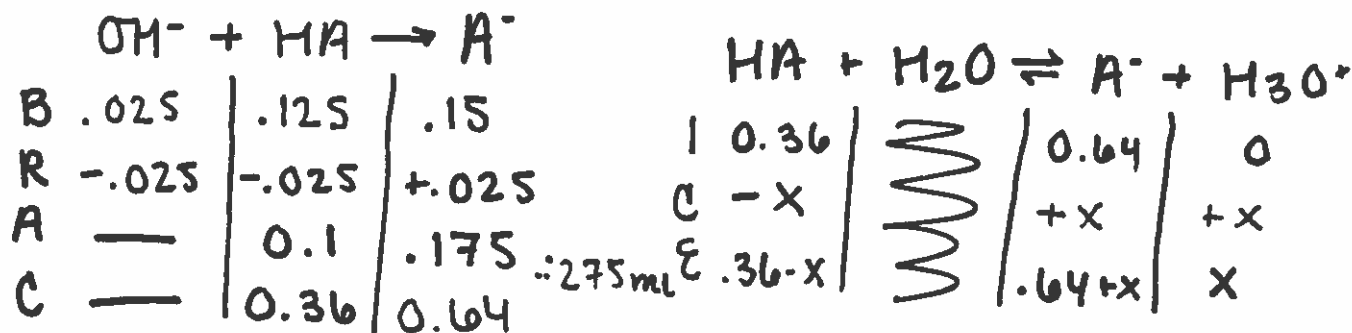 OH⁻ + HA → A⁻
B .025 | .125 | .15
R -.025 | -.025 | +.025
A — | 0.1 | .175
C — | 0.36 | 0.64
÷275mL
HA + H₂O ⇌ A⁻ + H₃O⁺
I 0.36 | | 0.64 | 0
C -x | | +x | +x
E .36-x | | .64+x | x